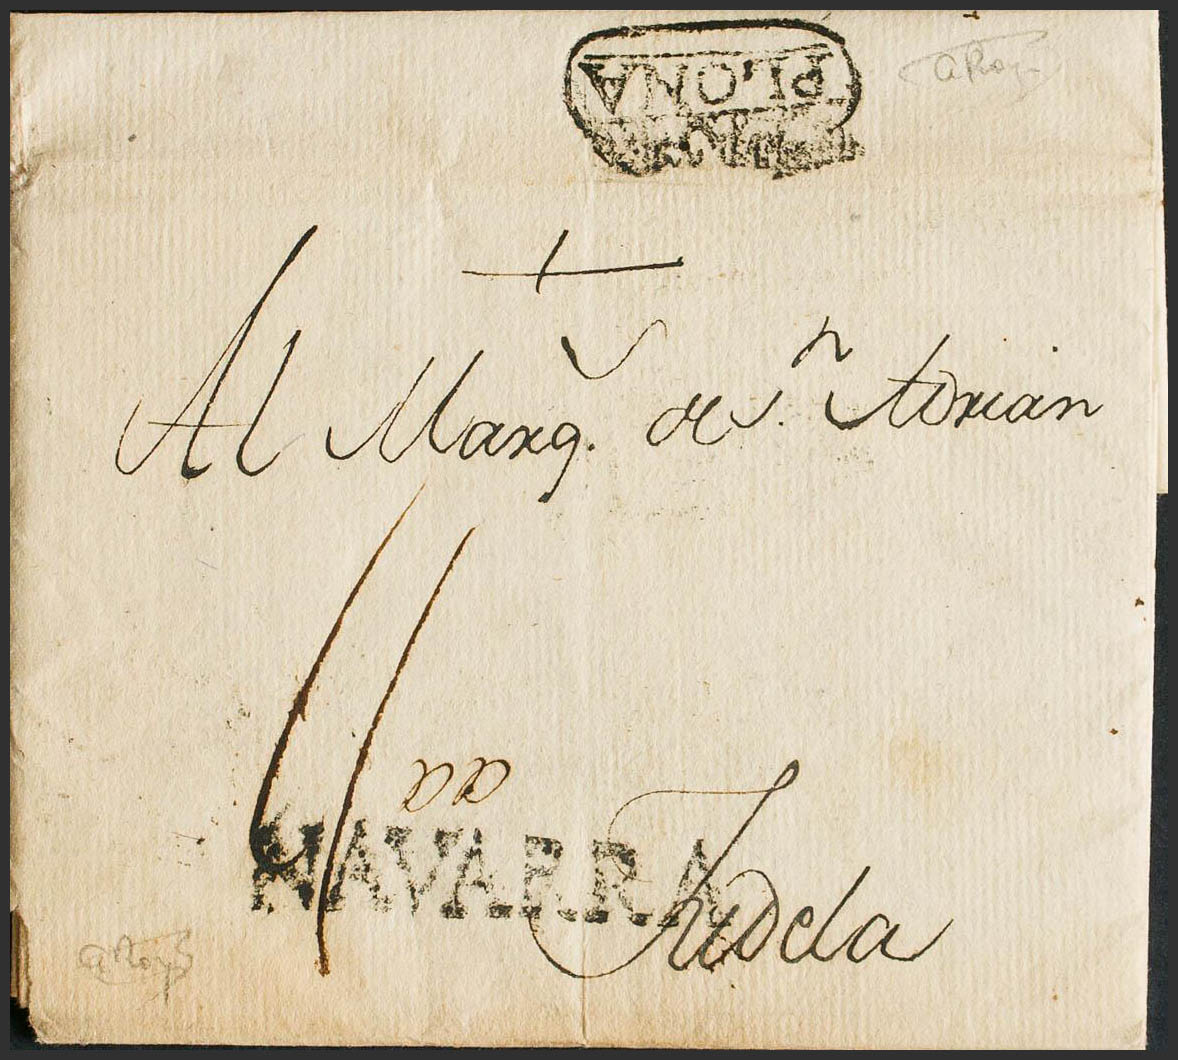 PLONA
aRoy
Al Marq.s de S.n Adrian
aa
NAVARRA
Tudela
aRoyS